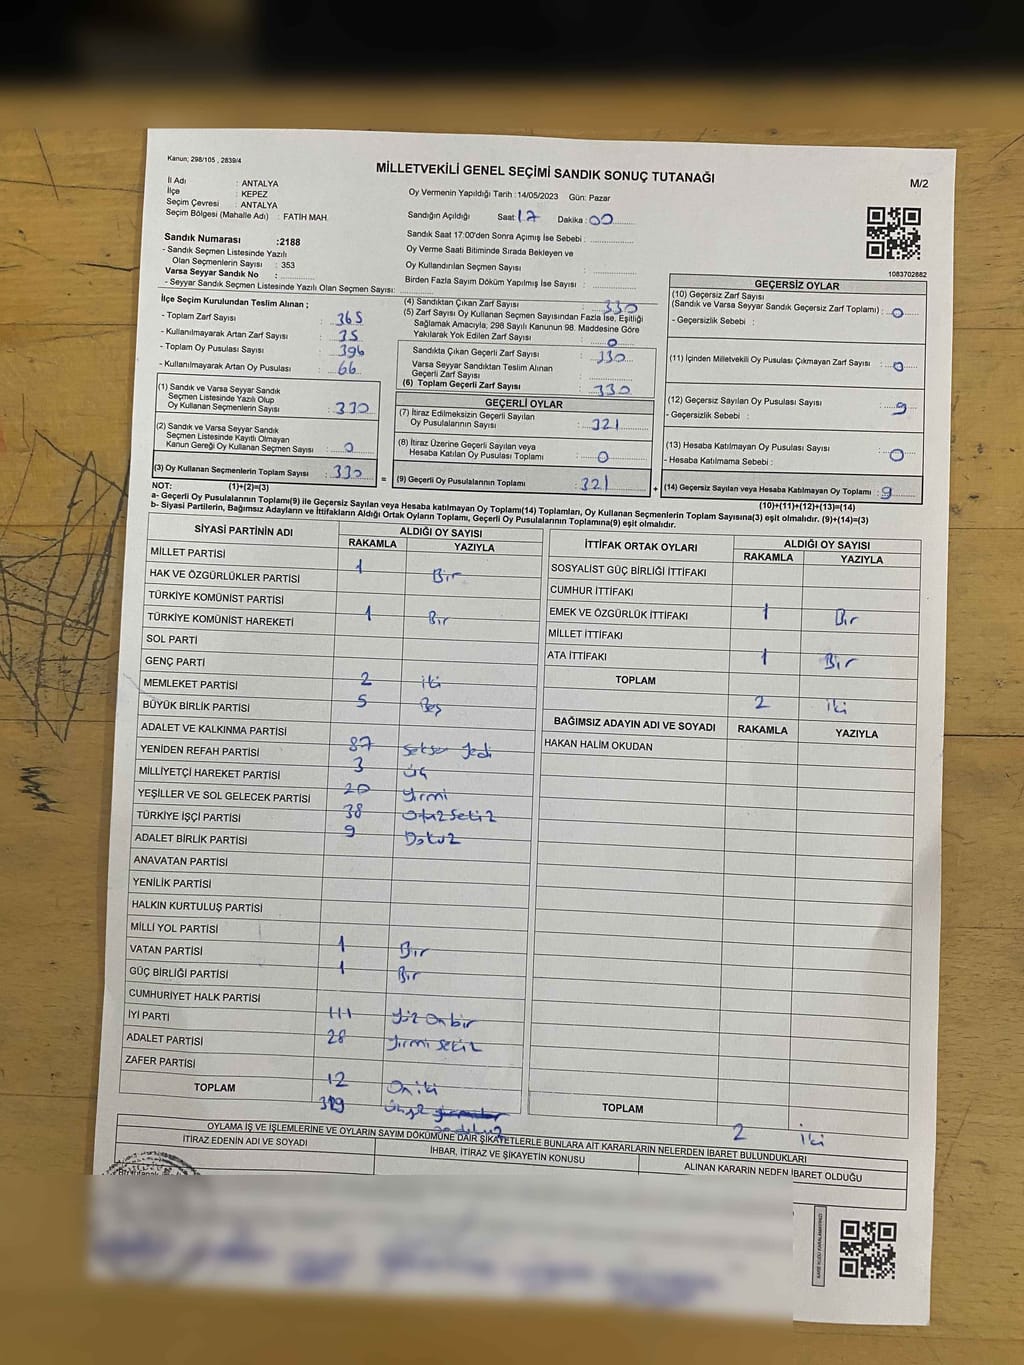 Kanun; 298/105 , 2839/4
MİLLETVEKİLİ GENEL SEÇİMİ SANDIK SONUÇ TUTANAĞI
M/2
İl Adı : ANTALYA
İlçe : KEPEZ
Seçim Çevresi : ANTALYA
Seçim Bölgesi (Mahalle Adı) : FATİH MAH.
Oy Vermenin Yapıldığı Tarih :14/05/2023 Gün: Pazar
Sandığın Açıldığı Saat: 17 Dakika : 00
Sandık Saat 17:00'den Sonra Açımış İse Sebebi :
Oy Verme Saati Bitiminde Sırada Bekleyen ve
Oy Kullandırılan Seçmen Sayısı :
Birden Fazla Sayım Döküm Yapılmış İse Sayısı :
Sandık Numarası :2188
- Sandık Seçmen Listesinde Yazılı
Olan Seçmenlerin Sayısı : 353
Varsa Seyyar Sandık No :
- Seyyar Sandık Seçmen Listesinde Yazılı Olan Seçmen Sayısı:
1083702882
İlçe Seçim Kurulundan Teslim Alınan ;
- Toplam Zarf Sayısı : 365
- Kullanılmayarak Artan Zarf Sayısı : 35
- Toplam Oy Pusulası Sayısı : 396
- Kullanılmayarak Artan Oy Pusulası : 66
(1) Sandık ve Varsa Seyyar Sandık
Seçmen Listesinde Yazılı Olup
Oy Kullanan Seçmenlerin Sayısı : 330
(2) Sandık ve Varsa Seyyar Sandık
Seçmen Listesinde Kayıtlı Olmayan
Kanun Gereği Oy Kullanan Seçmen Sayısı : 0
(3) Oy Kullanan Seçmenlerin Toplam Sayısı : 330
(4) Sandıktan Çıkan Zarf Sayısı : 330
(5) Zarf Sayısı Oy Kullanan Seçmen Sayısından Fazla İse, Eşitliği
Sağlamak Amacıyla; 298 Sayılı Kanunun 98. Maddesine Göre
Yakılarak Yok Edilen Zarf Sayısı : 0
Sandıkta Çıkan Geçerli Zarf Sayısı : 330
Varsa Seyyar Sandıktan Teslim Alınan
Geçerli Zarf Sayısı :
(6) Toplam Geçerli Zarf Sayısı : 330
GEÇERLİ OYLAR
(7) İtiraz Edilmeksizin Geçerli Sayılan
Oy Pusulalarının Sayısı : 321
(8) İtiraz Üzerine Geçerli Sayılan veya
Hesaba Katılan Oy Pusulası Toplamı : 0
= (9) Geçerli Oy Pusulalarının Toplamı : 321
GEÇERSİZ OYLAR
(10) Geçersiz Zarf Sayısı
(Sandık ve Varsa Seyyar Sandık Geçersiz Zarf Toplamı) : 0
- Geçersizlik Sebebi :
(11) İçinden Milletvekili Oy Pusulası Çıkmayan Zarf Sayısı : 0
(12) Geçersiz Sayılan Oy Pusulası Sayısı : 9
- Geçersizlik Sebebi :
(13) Hesaba Katılmayan Oy Pusulası Sayısı : 0
- Hesaba Katılmama Sebebi :
+ (14) Geçersiz Sayılan veya Hesaba Katılmayan Oy Toplamı : 9
NOT: (1)+(2)=(3)
(10)+(11)+(12)+(13)=(14)
a- Geçerli Oy Pusulalarının Toplamı(9) ile Geçersiz Sayılan veya Hesaba katılmayan Oy Toplamı(14) Toplamları, Oy Kullanan Seçmenlerin Toplam Sayısına(3) eşit olmalıdır. (9)+(14)=(3)
b- Siyasi Partilerin, Bağımsız Adayların ve İttifakların Aldığı Ortak Oyların Toplamı, Geçerli Oy Pusulalarının Toplamına(9) eşit olmalıdır.
SİYASİ PARTİNİN ADI ALDIĞI OY SAYISI
RAKAMLA YAZIYLA
MİLLET PARTİSİ 1 Bir
HAK VE ÖZGÜRLÜKLER PARTİSİ
TÜRKİYE KOMÜNİST PARTİSİ 1 Bir
TÜRKİYE KOMÜNİST HAREKETİ
SOL PARTİ
GENÇ PARTİ 2 iki
MEMLEKET PARTİSİ 5 Beş
BÜYÜK BİRLİK PARTİSİ
ADALET VE KALKINMA PARTİSİ 87 seksen yedi
YENİDEN REFAH PARTİSİ 3 üç
MİLLİYETÇİ HAREKET PARTİSİ 20 yirmi
YEŞİLLER VE SOL GELECEK PARTİSİ 38 Otuz Sekiz
TÜRKİYE İŞÇİ PARTİSİ 9 Dokuz
ADALET BİRLİK PARTİSİ
ANAVATAN PARTİSİ
YENİLİK PARTİSİ
HALKIN KURTULUŞ PARTİSİ
MİLLİ YOL PARTİSİ 1 Bir
VATAN PARTİSİ 1 Bir
GÜÇ BİRLİĞİ PARTİSİ
CUMHURİYET HALK PARTİSİ 111 Yüz on bir
İYİ PARTİ 28 Yirmi sekiz
ADALET PARTİSİ
ZAFER PARTİSİ 12 On iki
TOPLAM 319
İTTİFAK ORTAK OYLARI ALDIĞI OY SAYISI
RAKAMLA YAZIYLA
SOSYALİST GÜÇ BİRLİĞİ İTTİFAKI
CUMHUR İTTİFAKI 1 Bir
EMEK VE ÖZGÜRLÜK İTTİFAKI
MİLLET İTTİFAKI 1 Bir
ATA İTTİFAKI
TOPLAM 2 iki
BAĞIMSIZ ADAYIN ADI VE SOYADI RAKAMLA YAZIYLA
HAKAN HALİM OKUDAN
TOPLAM 2 iki
OYLAMA İŞ VE İŞLEMLERİNE VE OYLARIN SAYIM DÖKÜMÜNE DAİR ŞİKAYETLERLE BUNLARA AİT KARARLARIN NELERDEN İBARET BULUNDUKLARI
İTİRAZ EDENİN ADI VE SOYADI
İHBAR, İTİRAZ VE ŞİKAYETİN KONUSU
ALINAN KARARIN NEDEN İBARET OLDUĞU